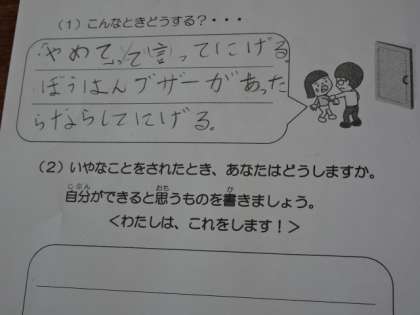 (1) こんなときどうする？・・・
「やめてっ」って言ってにげる。
ぼうはんブザーがあった
らならしてにげる。
(2) いやなことをされたとき、あなたはどうしますか。
自分ができると思うものを書きましょう。
＜わたしは、これをします！＞